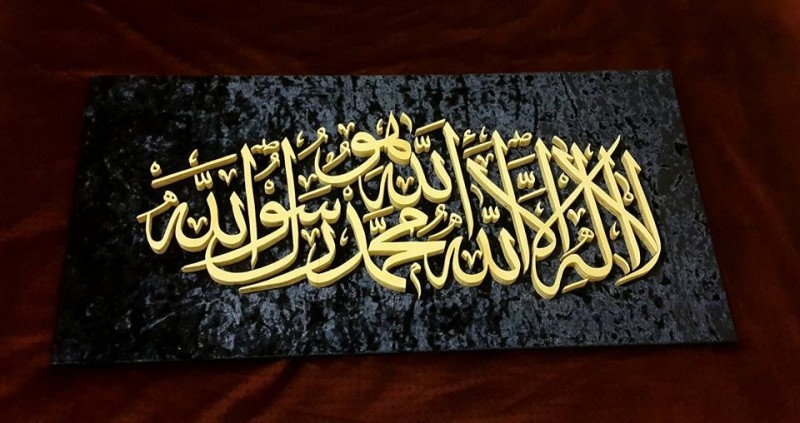 لا اله الا الله محمد رسول الله
الله هو